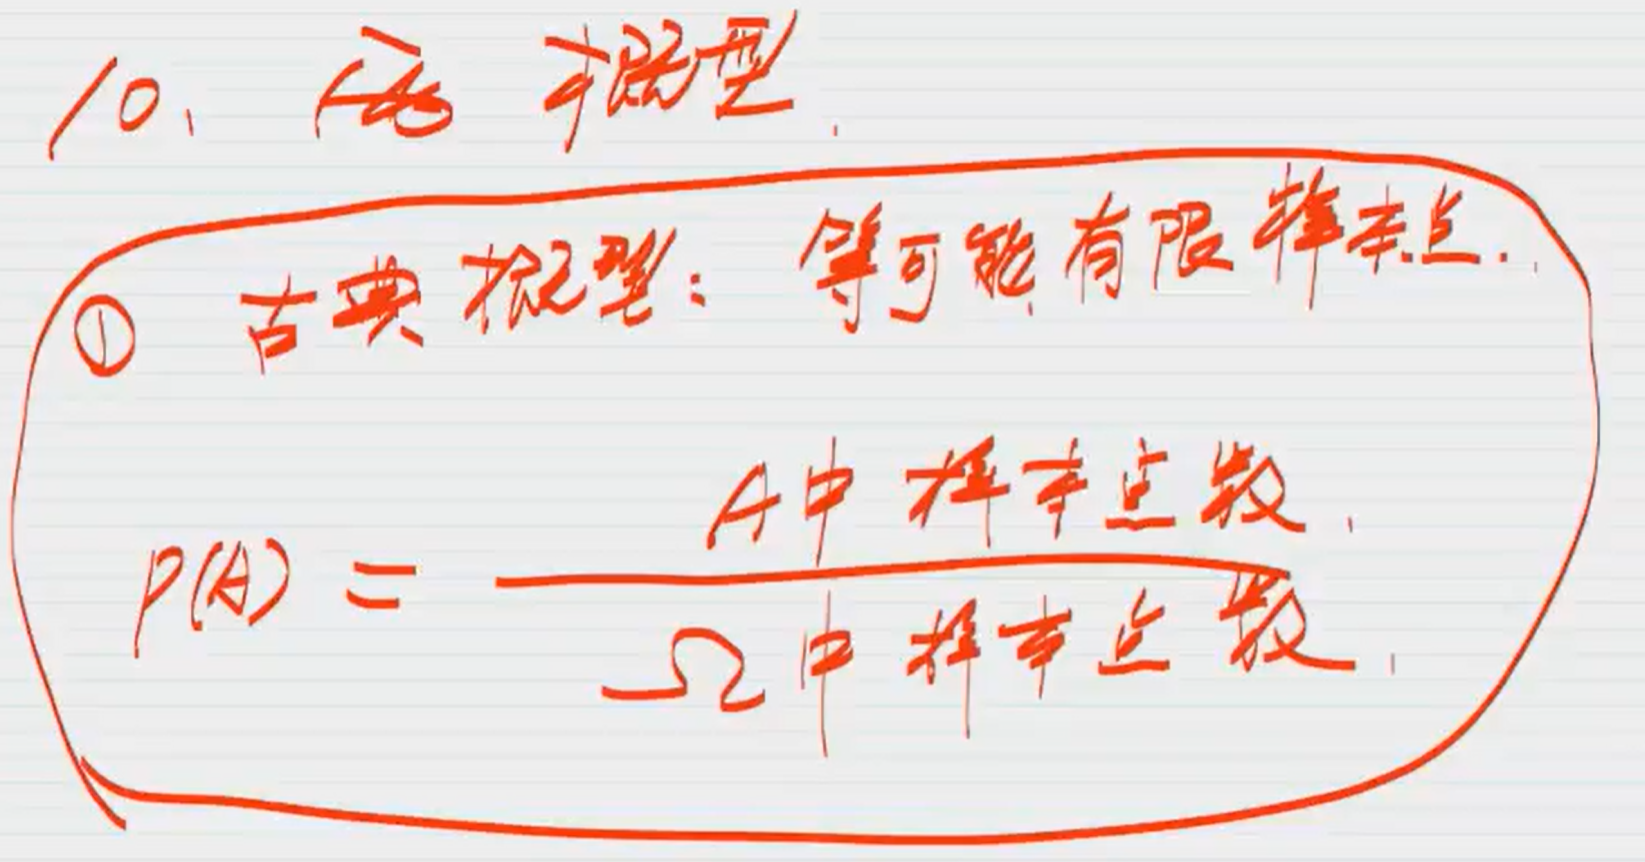 10. 概型.
① 古典概型: 等可能有限样本点.
P(A) = A中样本点数.
Ω中样本点数.